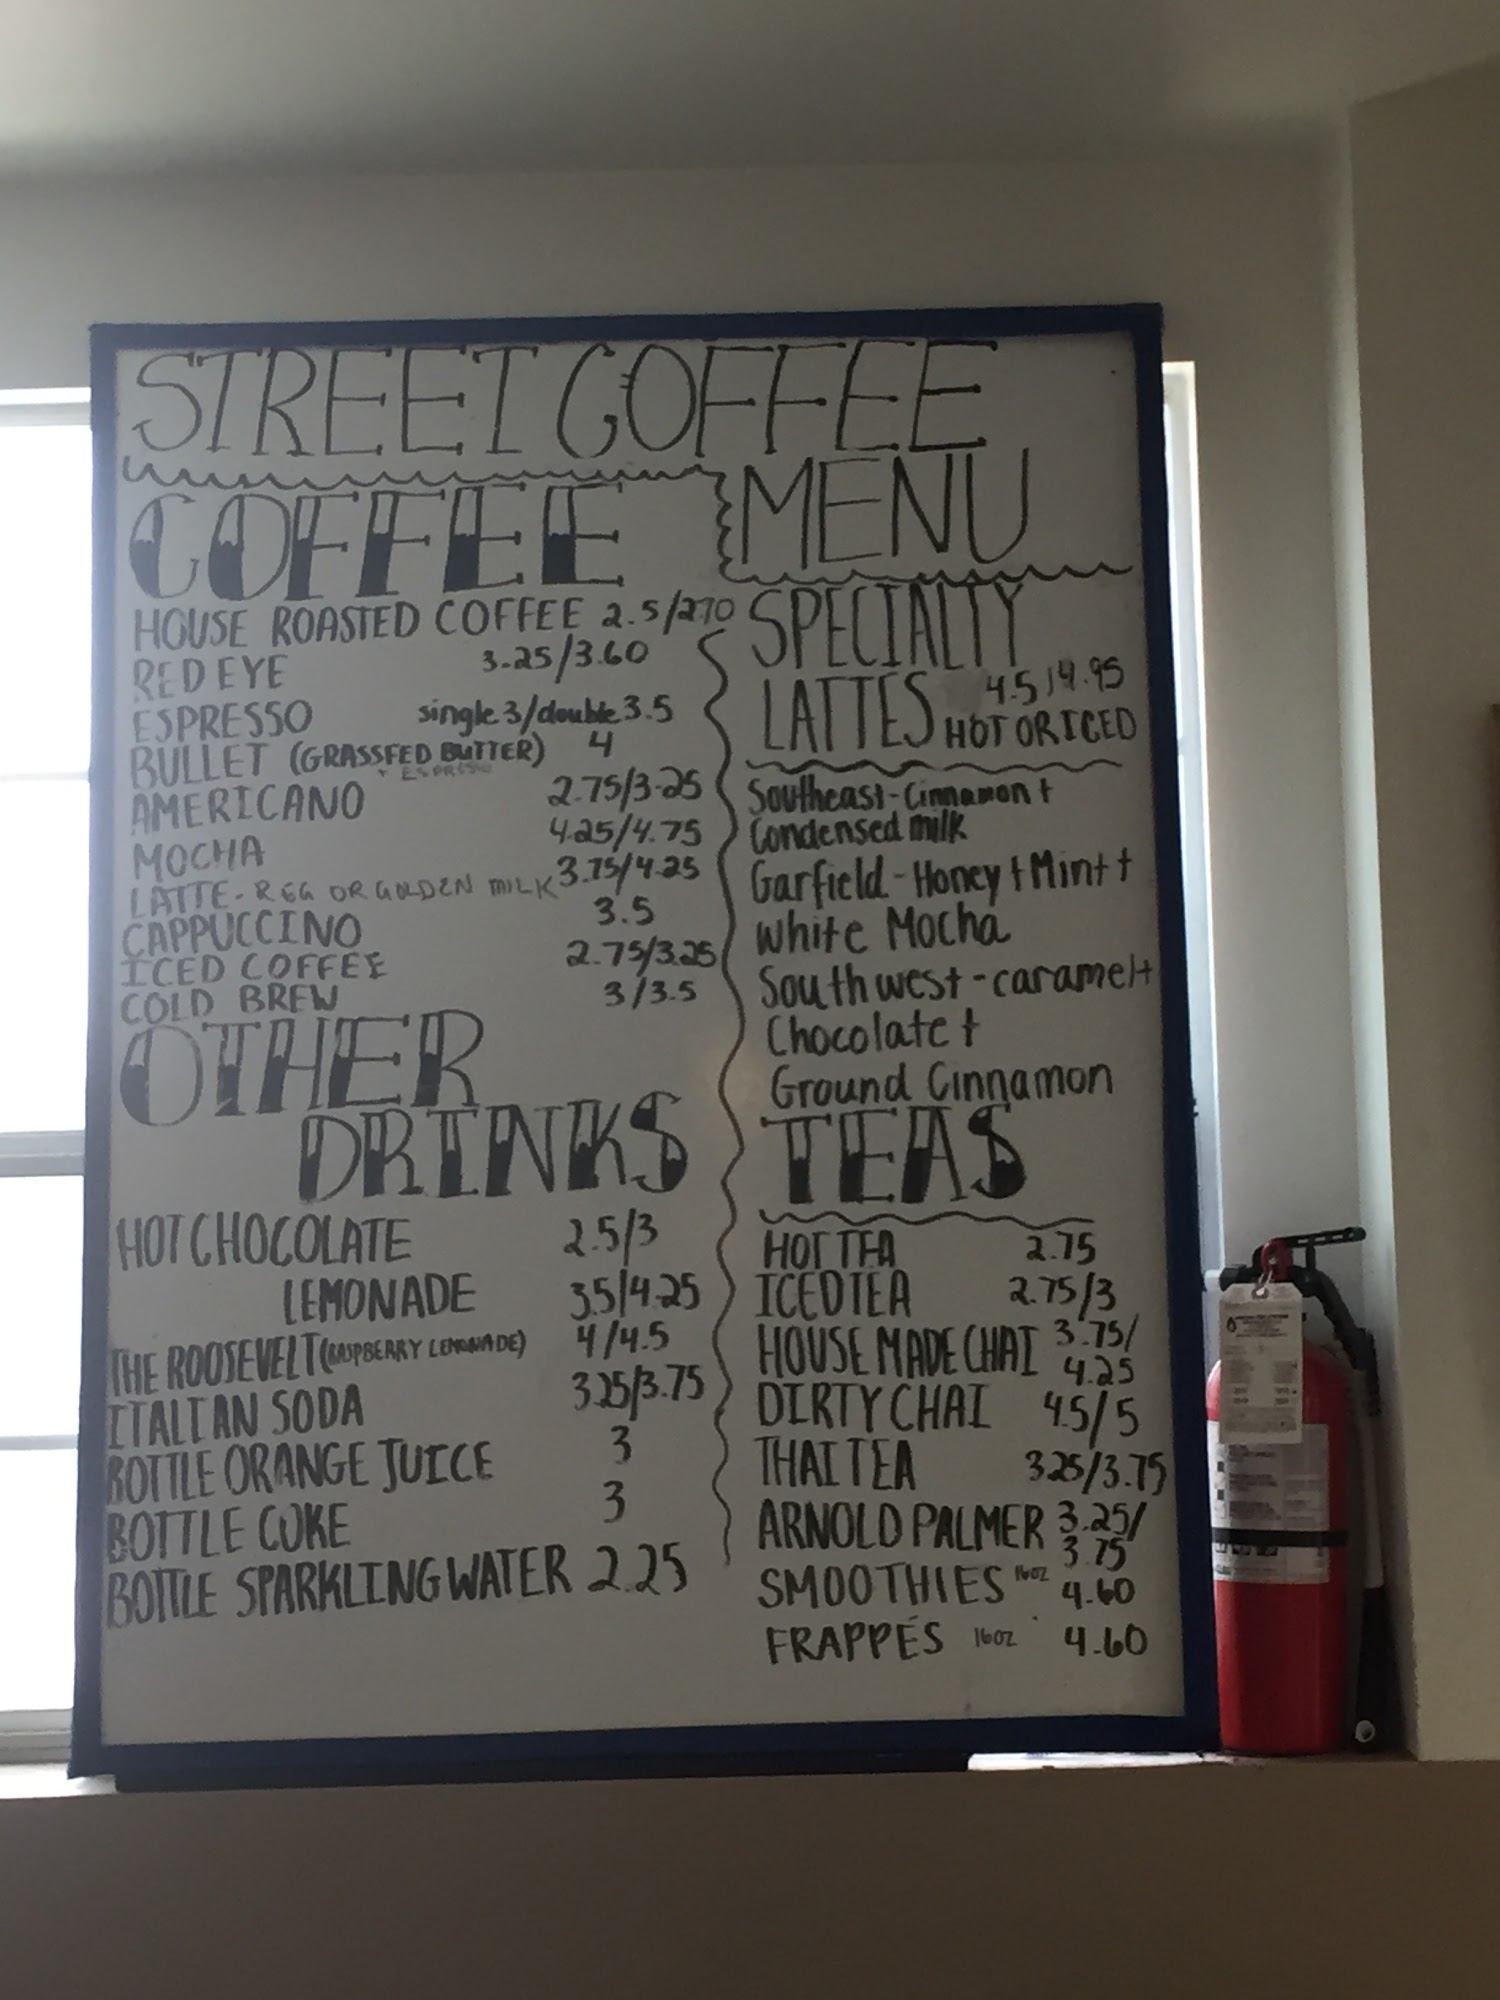 STREET COFFEE
MENU
COFFEE
HOUSE ROASTED COFFEE 2.5/2.70
RED EYE 3.25/3.60
ESPRESSO single 3/double 3.5
BULLET (GRASSFED BUTTER) 4
+ ESPRESSO
AMERICANO 2.75/3.25
MOCHA 4.25/4.75
LATTE - REG OR GOLDEN MILK 3.75/4.25
CAPPUCCINO 3.5
ICED COFFEE 2.75/3.25
COLD BREW 3/3.5
OTHER
DRINKS
HOT CHOCOLATE 2.5/3
LEMONADE 3.5/4.25
THE ROOSEVELT (RASPBERRY LEMONADE) 4/4.5
ITALIAN SODA 3.25/3.75
BOTTLE ORANGE JUICE 3
BOTTLE COKE 3
BOTTLE SPARKLING WATER 2.25
SPECIALTY
LATTES 4.5/4.95
HOT OR ICED
Southeast - Cinnamon +
Condensed milk
Garfield - Honey + Mint +
White Mocha
Southwest - caramel +
Chocolate +
Ground Cinnamon
TEAS
HOT TEA 2.75
ICED TEA 2.75/3
HOUSE MADE CHAI 3.75/
4.25
DIRTY CHAI 4.5/5
THAI TEA 3.25/3.75
ARNOLD PALMER 3.25/
3.75
SMOOTHIES 16oz 4.60
FRAPPÉS 16oz 4.60